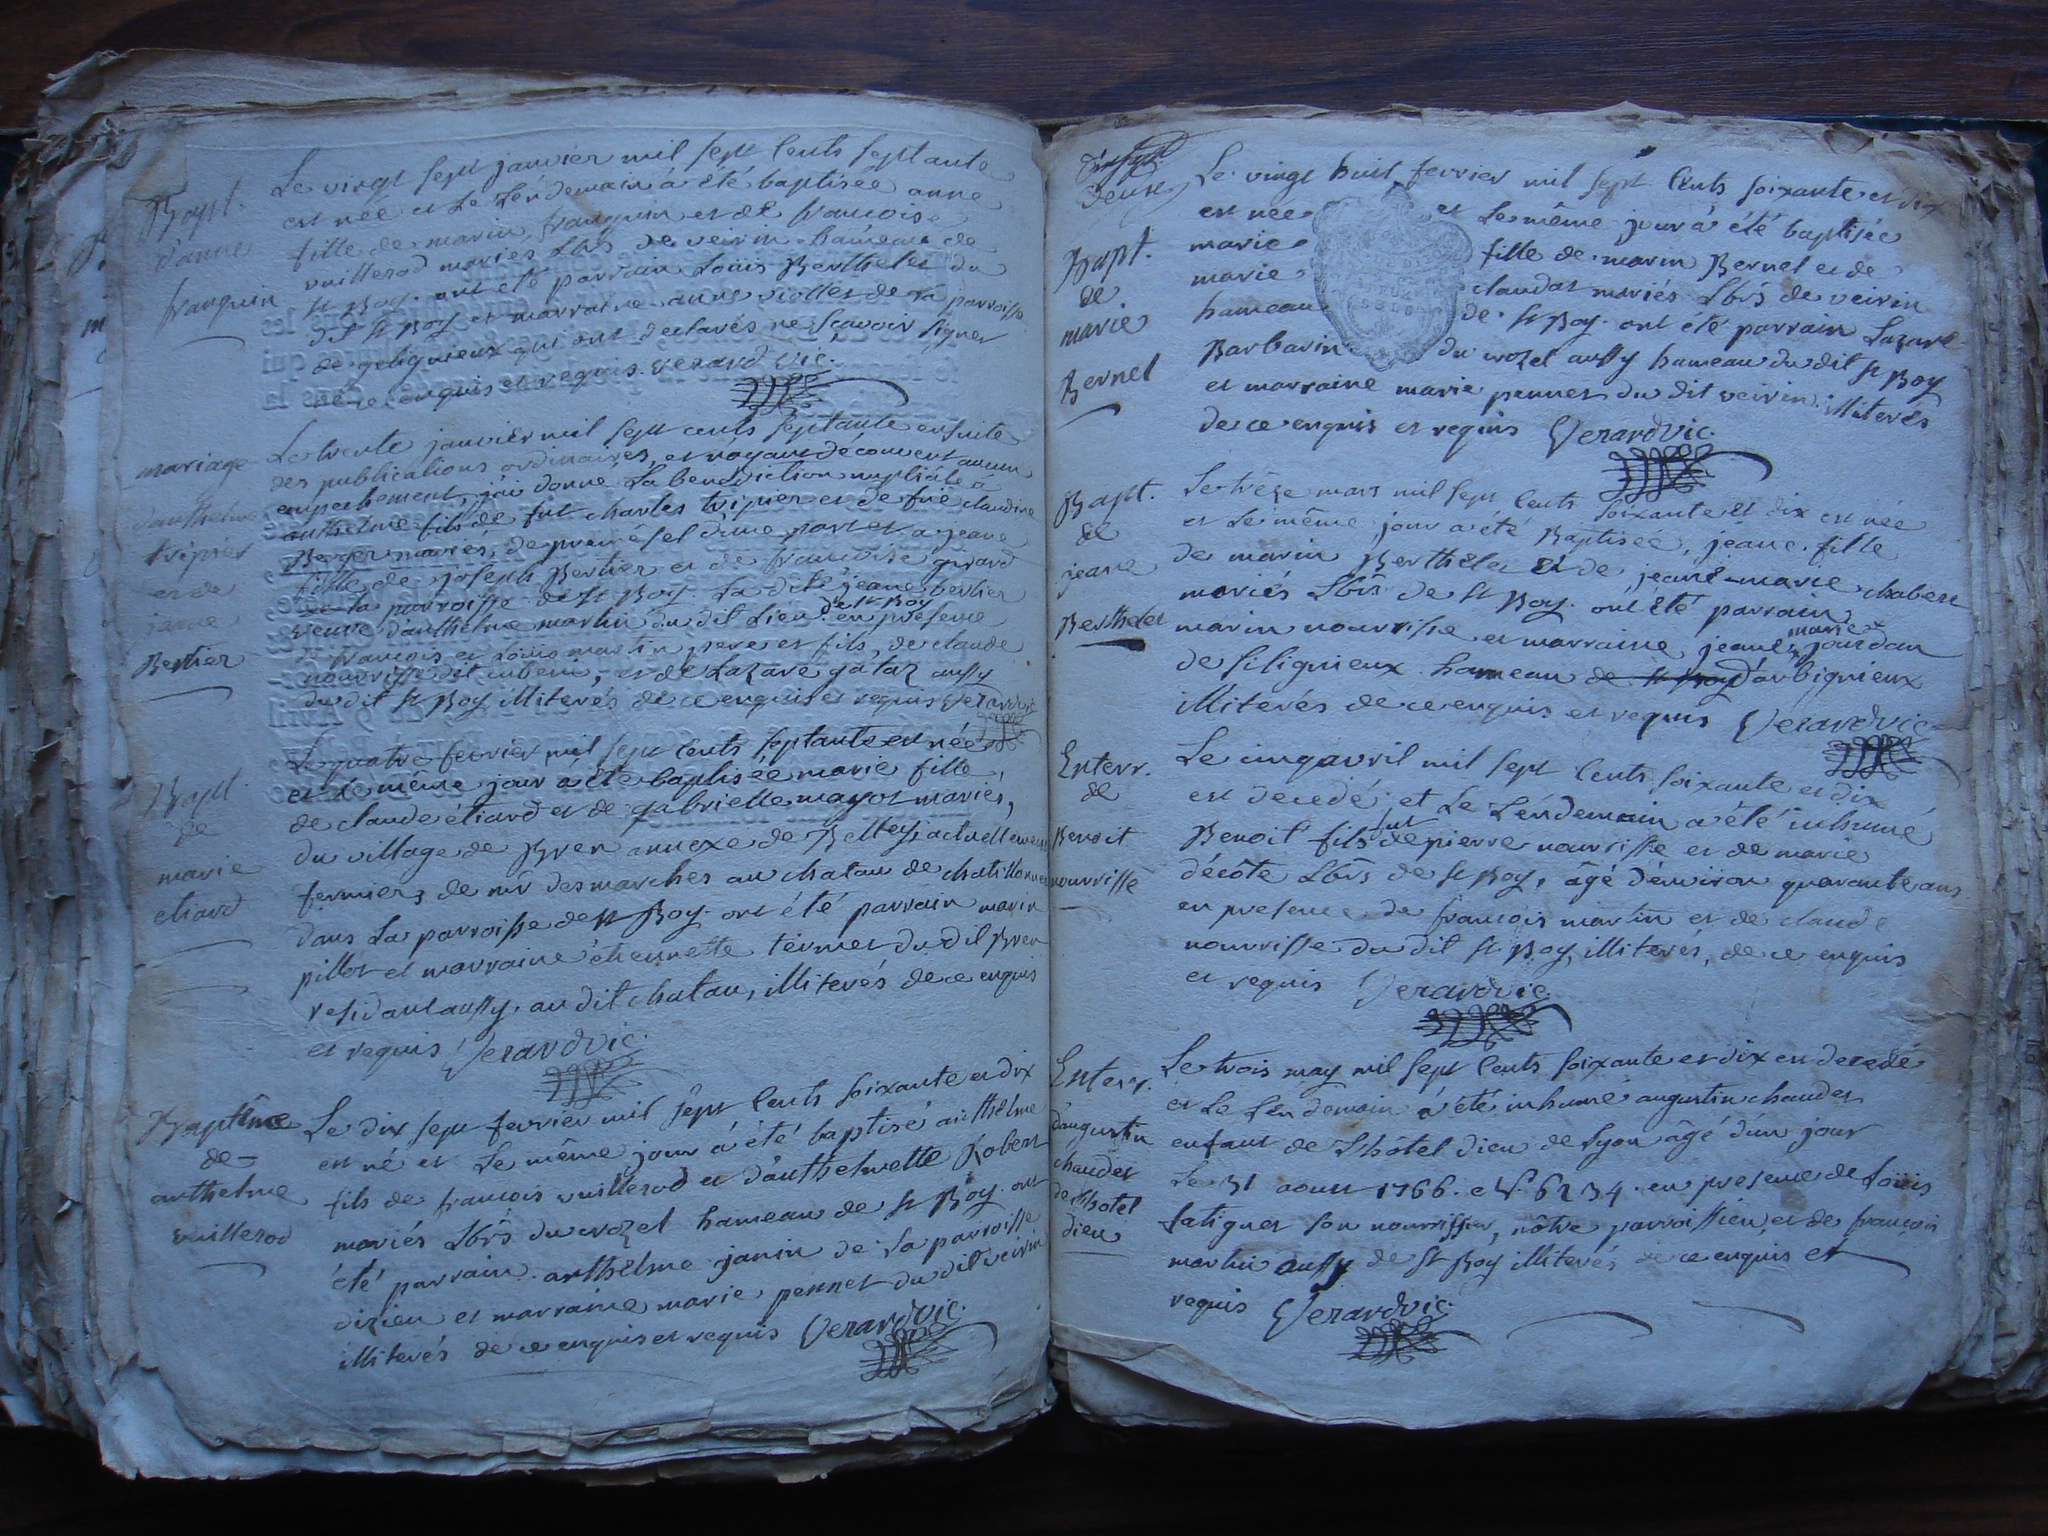 Bapt.
d'anne
franquin
Le vingt sept janvier mil sept cents septante
est née et le lendemain à été baptisée anne
fille de marin franquin et de françoise
vuillerod mariés Lbrs de veirin hameau de
St Boy. ont été parrain Loüis Berthelet du
dit St Boy et marraine anne viollet de la parroisse
de gelignieux qui ont declarés ne sçavoir signer
de ce enquis et requis. verard vic.
mariage
d'anthelme
tripier
et de
jeane
Bertier
Le trente janvier mil sept cents septante ensuite
des publications ordinaires, et n'ayant découvert aucun
empechement, j'ai donné la benediction nuptiale à
anthelme fils de fut charles tripier et de fuë claudine
Berger mariés, de premésel d'une part et a jeane
fille de joseph Bertier et de françoise girard
de la parroisse de St Boy. la dite jeane bertier
veuve d'anthelme martin du dit lieu de St Boy en presence
de françois et Loüis martin pere et fils, de claude
nourrisse dit, et de Lazare gataz aussy
du dit St Boy illiterés de ce enquis et requis verard vic
Bapt
de
marie
etiard
Le quatre fevrier mil sept cents septante est née
et le même jour a été baptisée marie fille
de claude étiard et de gabrielle mayot mariés,
du village de Bren annexe de Belley actuellement
fermiers de mr desmarches au chatau de chatillonnet
dans la parroisse de St Boy. ont été parrain marin
pillot et marraine étiennette termet du dit Bren
residant aussy au dit chatau, illiterés de ce enquis
et requis Verard vic.
Baptême
de
anthelme
vuillerod
Le dix sept fevrier mil sept cents soixante et dix
est né et le même jour à été baptisé anthelme
fils de françois vuillerod et d'anthelmette Robert
mariés Lbrs du crozel hameau de St Boy. ont
été parrain anthelme janin de la parroisse
dizieu et marraine marie pennet du dit veirin
illiterés de ce enquis et requis Verard vic.
deuse
Bapt.
de
marie
Bernel
Le vingt huit fevrier mil sept cents soixante et dix
est née et le même jour à été baptisée
marie fille de marin Bernel et de
marie claudat mariés Lbrs de veirin
hameau de St Boy. ont été parrain Lazare
Barbarin du crozel aussy hameau du dit St Boy
et marraine marie pennet du dit veirin illiterés
de ce enquis et requis Verard vic.
Bapt.
de
jeane
Berthelet
Le trêze mars mil sept cents soixante et dix est née
et le même jour a été Baptisée, jeane fille
de marin Berthelet et de jeane-marie chabert
mariés Lbrs de St Boy. ont été parrain
marin nourrisse et marraine jeane marie jourdan
de silignieux hameau de St Boy d'arbignieux
illiterés de ce enquis et requis Verard vic.
Enterr.
de
Benoit
nourrisse
Le cinq avril mil sept cents soixante et dix
est decedé et le lendemain a été inhumé
Benoit fils de fut pierre nourrisse et de marie
décôte Lbrs de St Boy, âgé d'environ quarante ans
en presence de françois martin et de claude
nourrisse du dit St Boy, illiterés, de ce enquis
et requis Verard vic.
Enterr.
d'augustin
chaudet
de l'hotel
dieu
Le trois may mil sept cents soixante et dix est decedé
et le lendemain a été inhumé augustin chaudet
enfant de l'hôtel dieu de Lyon âgé d'un jour
le 31 aoust 1766. N° 6234. en presence de Loüis
fatiguet son nourrissier, nôtre parroissien, et de françois
martin aussy de St Boy illiterés de ce enquis et
requis Verard vic.